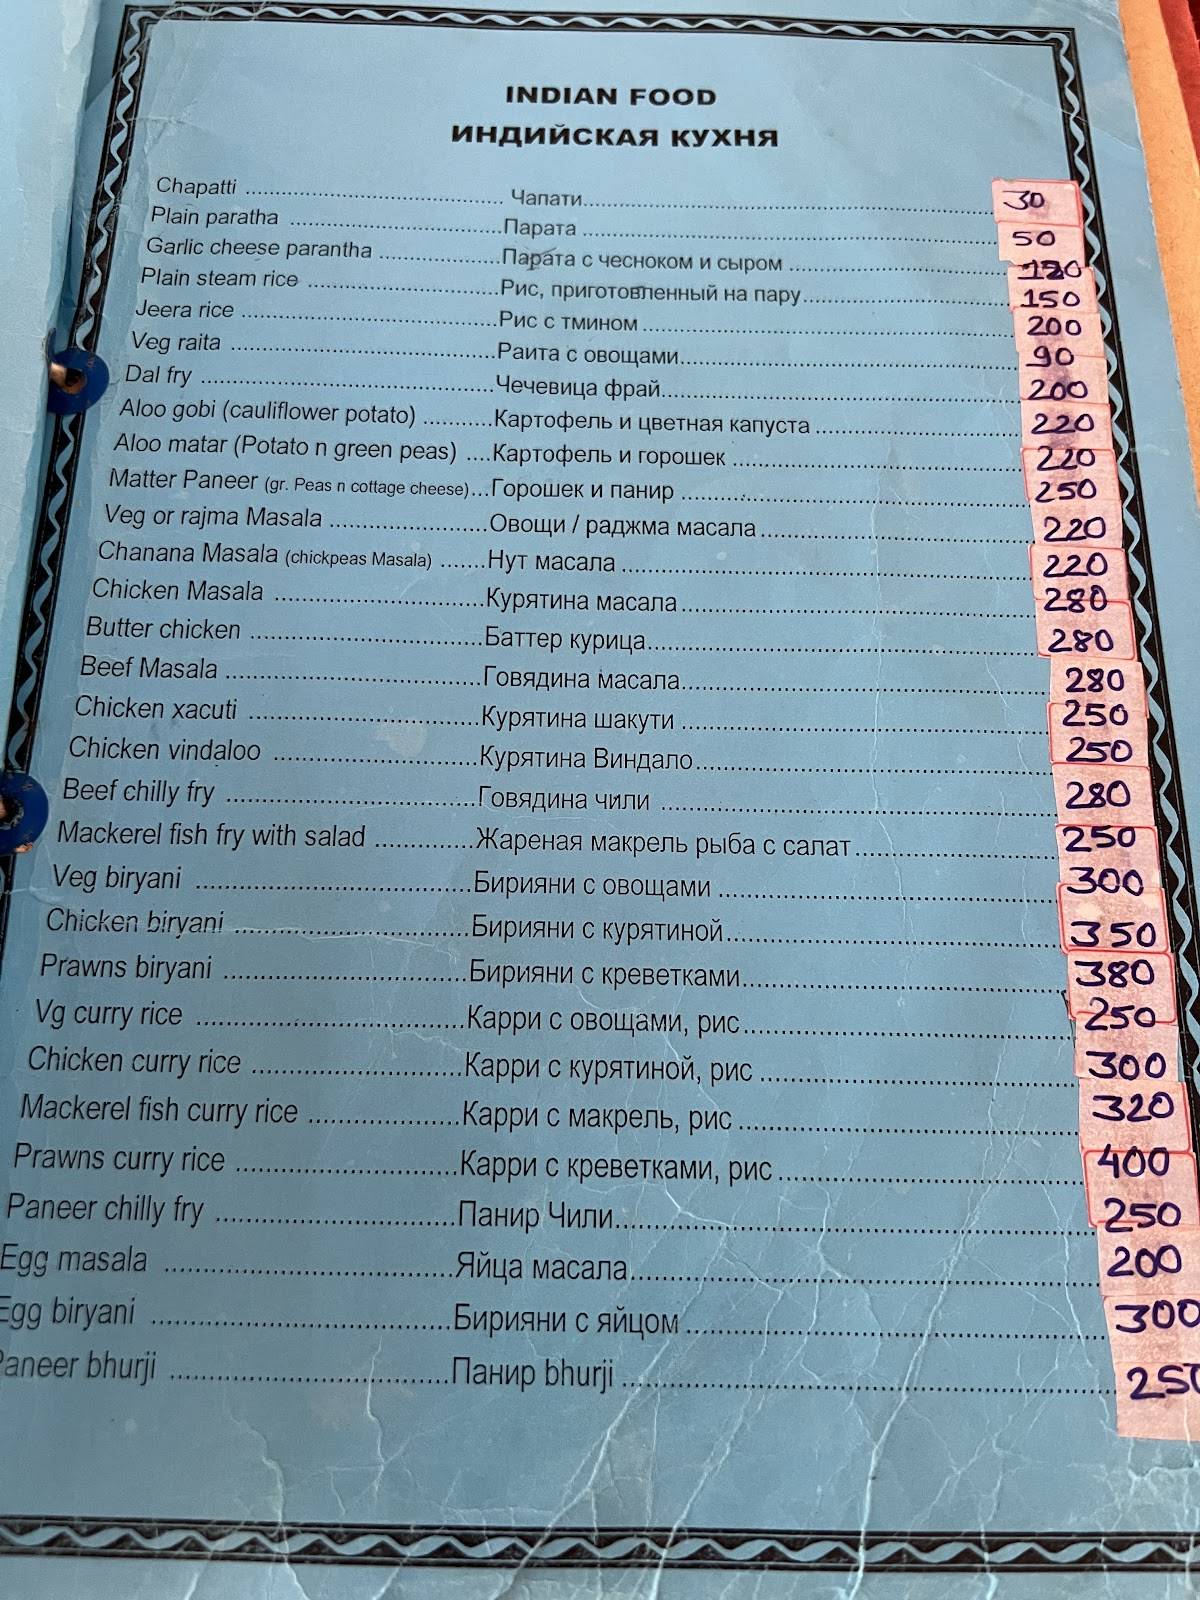 INDIAN FOOD
ИНДИЙСКАЯ КУХНЯ
Chapatti ........ Чапати ........ 30
Plain paratha ........ Парата ........ 50
Garlic cheese parantha ........ Парата с чесноком и сыром ........ 120
Plain steam rice ........ Рис, приготовленный на пару ........ 150
Jeera rice ........ Рис с тмином ........ 200
Veg raita ........ Раита с овощами ........ 90
Dal fry ........ Чечевица фрай ........ 200
Aloo gobi (cauliflower potato) ........ Картофель и цветная капуста ........ 220
Aloo matar (Potato n green peas) ........ Картофель и горошек ........ 220
Matter Paneer (gr. Peas n cottage cheese) ........ Горошек и панир ........ 250
Veg or rajma Masala ........ Овощи / раджма масала ........ 220
Chanana Masala (chickpeas Masala) ........ Нут масала ........ 220
Chicken Masala ........ Курятина масала ........ 280
Butter chicken ........ Баттер курица ........ 280
Beef Masala ........ Говядина масала ........ 280
Chicken xacuti ........ Курятина шакути ........ 250
Chicken vindaloo ........ Курятина Виндало ........ 250
Beef chilly fry ........ Говядина чили ........ 280
Mackerel fish fry with salad ........ Жареная макрель рыба с салат ........ 250
Veg biryani ........ Бирияни с овощами ........ 300
Chicken biryani ........ Бирияни с курятиной ........ 350
Prawns biryani ........ Бирияни с креветками ........ 380
Vg curry rice ........ Карри с овощами, рис ........ 250
Chicken curry rice ........ Карри с курятиной, рис ........ 300
Mackerel fish curry rice ........ Карри с макрель, рис ........ 320
Prawns curry rice ........ Карри с креветками, рис ........ 400
Paneer chilly fry ........ Панир Чили ........ 250
Egg masala ........ Яйца масала ........ 200
Egg biryani ........ Бирияни с яйцом ........ 300
Paneer bhurji ........ Панир bhurji ........ 250